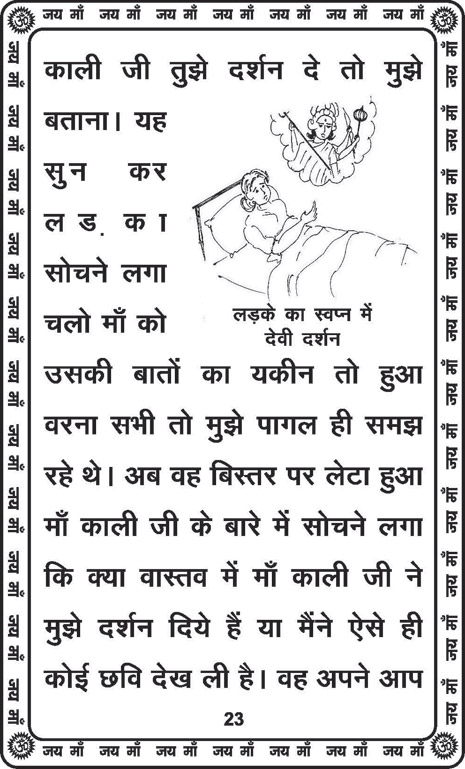 जय माँ जय माँ जय माँ जय माँ जय माँ जय माँ जय माँ
काली जी तुझे दर्शन दे तो मुझे
बताना। यह
सुन कर
लड़का
सोचने लगा
चलो माँ को
लड़के का स्वप्न में
देवी दर्शन
उसकी बातों का यकीन तो हुआ
वरना सभी तो मुझे पागल ही समझ
रहे थे। अब वह बिस्तर पर लेटा हुआ
माँ काली जी के बारे में सोचने लगा
कि क्या वास्तव में माँ काली जी ने
मुझे दर्शन दिये हैं या मैंने ऐसे ही
कोई छवि देख ली है। वह अपने आप
23
जय माँ जय माँ जय माँ जय माँ जय माँ जय माँ जय माँ
जय माँ जय माँ जय माँ जय माँ जय माँ जय माँ जय माँ जय माँ जय माँ जय माँ जय माँ जय माँ
जय माँ जय माँ जय माँ जय माँ जय माँ जय माँ जय माँ जय माँ जय माँ जय माँ जय माँ जय माँ
ॐ
ॐ
ॐ
ॐ